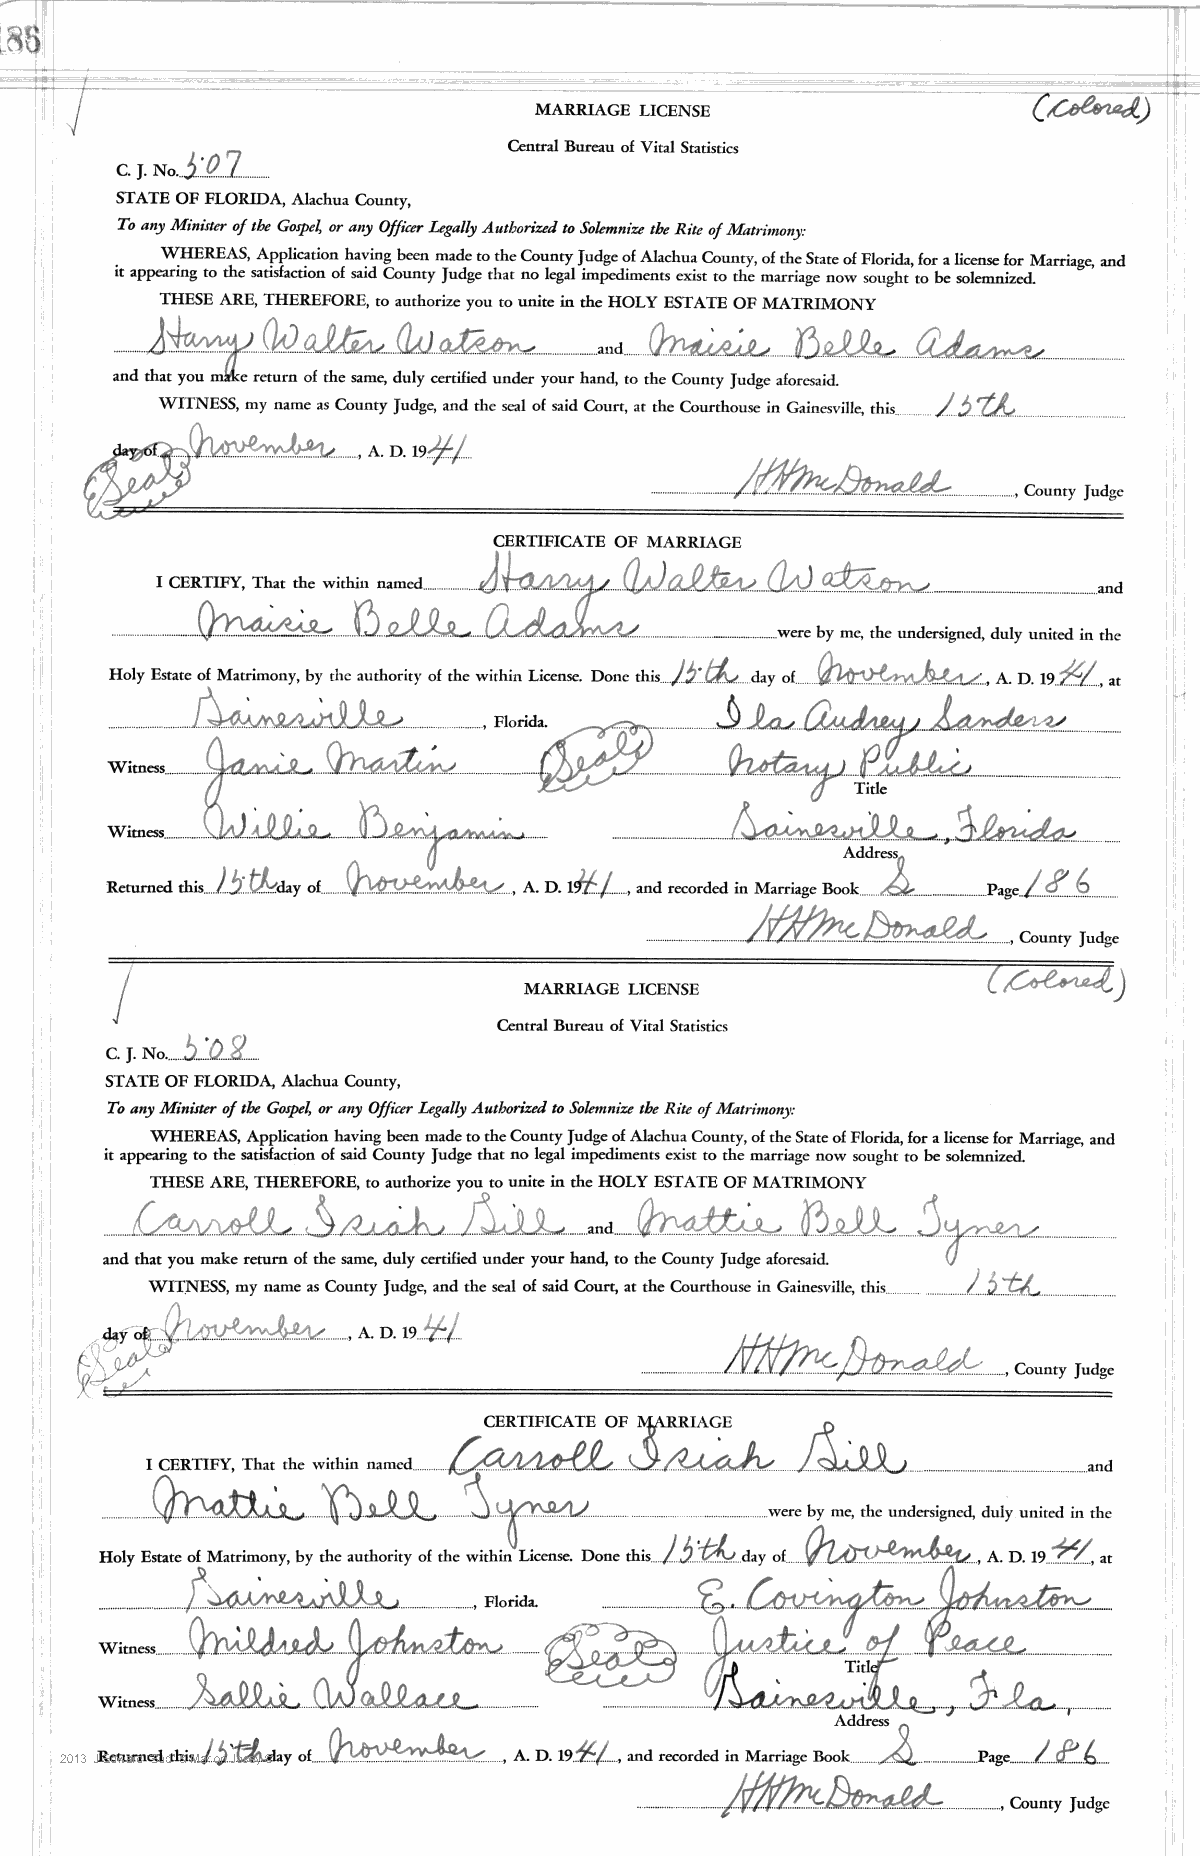 186
MARRIAGE LICENSE (Colored)
Central Bureau of Vital Statistics
C. J. No. 507
STATE OF FLORIDA, Alachua County,
To any Minister of the Gospel, or any Officer Legally Authorized to Solemnize the Rite of Matrimony:
WHEREAS, Application having been made to the County Judge of Alachua County, of the State of Florida, for a license for Marriage, and
it appearing to the satisfaction of said County Judge that no legal impediments exist to the marriage now sought to be solemnized.
THESE ARE, THEREFORE, to authorize you to unite in the HOLY ESTATE OF MATRIMONY
Harry Walter Watson and Maisie Belle Adams
and that you make return of the same, duly certified under your hand, to the County Judge aforesaid.
WITNESS, my name as County Judge, and the seal of said Court, at the Courthouse in Gainesville, this 15th
day of November, A. D. 1941
Seal HHMcDonald, County Judge
CERTIFICATE OF MARRIAGE
I CERTIFY, That the within named Harry Walter Watson and
Maisie Belle Adams were by me, the undersigned, duly united in the
Holy Estate of Matrimony, by the authority of the within License. Done this 15th day of November, A. D. 1941, at
Gainesville, Florida. Ila Audrey Sanders
Witness Janie Martin Seal Notary Public
Title
Witness Willie Benjamin Gainesville, Florida
Address
Returned this 15th day of November, A. D. 1941, and recorded in Marriage Book S Page 186
HHMcDonald, County Judge
MARRIAGE LICENSE (Colored)
Central Bureau of Vital Statistics
C. J. No. 508
STATE OF FLORIDA, Alachua County,
To any Minister of the Gospel, or any Officer Legally Authorized to Solemnize the Rite of Matrimony:
WHEREAS, Application having been made to the County Judge of Alachua County, of the State of Florida, for a license for Marriage, and
it appearing to the satisfaction of said County Judge that no legal impediments exist to the marriage now sought to be solemnized.
THESE ARE, THEREFORE, to authorize you to unite in the HOLY ESTATE OF MATRIMONY
Carroll Isiah Gill and Mattie Bell Tyner
and that you make return of the same, duly certified under your hand, to the County Judge aforesaid.
WITNESS, my name as County Judge, and the seal of said Court, at the Courthouse in Gainesville, this 15th
day of November, A. D. 1941
Seal HHMcDonald, County Judge
CERTIFICATE OF MARRIAGE
I CERTIFY, That the within named Carroll Isiah Gill and
Mattie Bell Tyner were by me, the undersigned, duly united in the
Holy Estate of Matrimony, by the authority of the within License. Done this 15th day of November, A. D. 1941, at
Gainesville, Florida. E. Covington Johnston
Witness Mildred Johnston Seal Justice of Peace
Title
Witness Sallie Wallace Gainesville, Fla.
Address
2013
Returned this 15th day of November, A. D. 1941, and recorded in Marriage Book S Page 186
HHMcDonald, County Judge